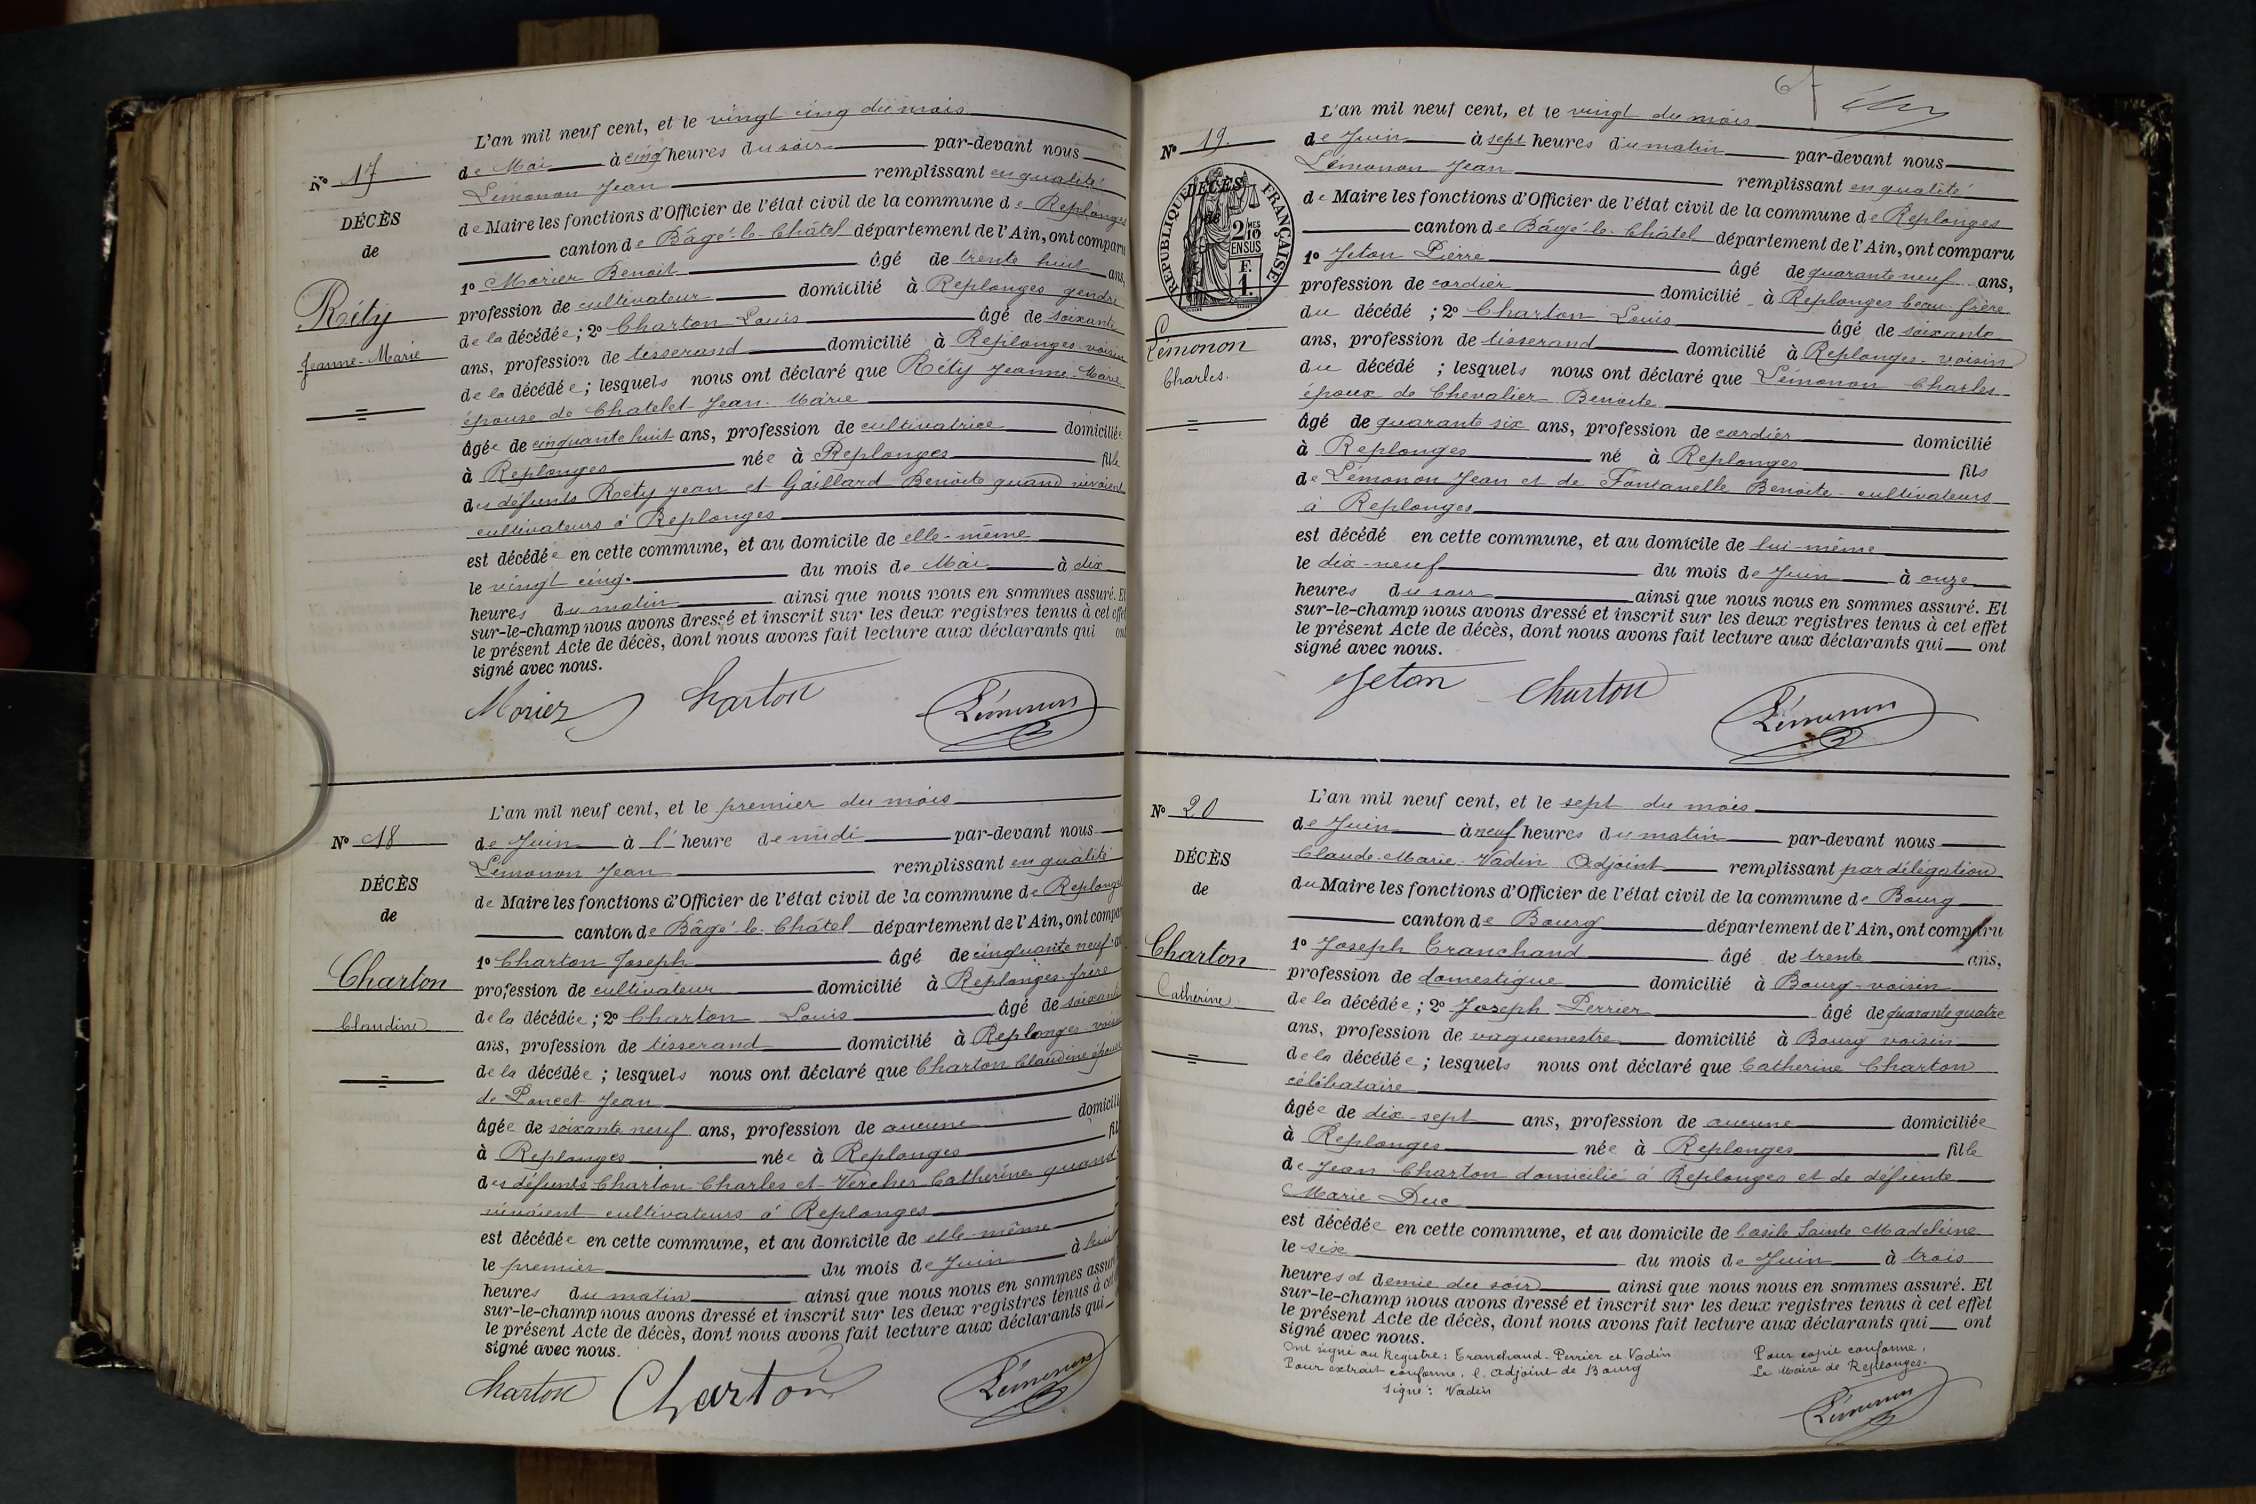 L'an mil neuf cent, et le vingt cinq du mois
N° 17
de Mai à cinq heures du soir par-devant nous
Lémonon Jean remplissant en qualité
de Maire les fonctions d'Officier de l'état civil de la commune de Replonges
DÉCÈS
de
canton de Bâgé-le-Châtel département de l'Ain, ont comparu
1° Morier Benoit âgé de trente huit ans,
profession de cultivateur domicilié à Replonges gendre
Réty
Jeanne-Marie
de la décédée ; 2° Charton Louis âgé de soixante
ans, profession de tisserand domicilié à Replonges voisin
de la décédée ; lesquels nous ont déclaré que Réty Jeanne-Marie
épouse de Chatelet Jean-Marie
âgée de cinquante huit ans, profession de cultivatrice domiciliée
à Replonges née à Replonges fille
des défunts Réty Jean et Gaillard Benoite quand vivaient
cultivateurs à Replonges
est décédée en cette commune, et au domicile de elle-même
le vingt cinq du mois de Mai à dix
heures du matin ainsi que nous nous en sommes assuré. Et
sur-le-champ nous avons dressé et inscrit sur les deux registres tenus à cet effet
le présent Acte de décès, dont nous avons fait lecture aux déclarants qui ont
signé avec nous.
Morier Charton Lémonon
L'an mil neuf cent, et le premier du mois
N° 18
de Juin à l' heure de midi par-devant nous
Lémonon Jean remplissant en qualité
de Maire les fonctions d'Officier de l'état civil de la commune de Replonges
DÉCÈS
de
canton de Bâgé-le-Châtel département de l'Ain, ont comparu
1° Charton Joseph âgé de cinquante neuf ans
profession de cultivateur domicilié à Replonges frère
Charton
Claudine
de la décédée ; 2° Charton Louis âgé de soixante
ans, profession de tisserand domicilié à Replonges voisin
de la décédée ; lesquels nous ont déclaré que Charton Claudine épouse
de Poncet Jean
âgée de soixante neuf ans, profession de aucune domicilié
à Replonges née à Replonges fil
des défunts Charton Charles et Vercher Catherine quand
vivaient cultivateurs à Replonges
est décédée en cette commune, et au domicile de elle-même
le premier du mois de Juin à huit
heures du matin ainsi que nous nous en sommes assuré
sur-le-champ nous avons dressé et inscrit sur les deux registres tenus à cet
le présent Acte de décès, dont nous avons fait lecture aux déclarants qui
signé avec nous.
Charton Charton Lémonon
L'an mil neuf cent, et le vingt du mois
N° 19
de Juin à sept heures du matin par-devant nous
Lémonon Jean remplissant en qualité
de Maire les fonctions d'Officier de l'état civil de la commune de Replonges
DÉCÈS
de
RÉPUBLIQUE FRANÇAISE
2/10 MES
EN SUS
F.
1.
canton de Bâgé-le-Châtel département de l'Ain, ont comparu
1° Jeton Pierre âgé de quarante neuf ans,
profession de cordier domicilié à Replonges beau frère
Lémonon
Charles.
du décédé ; 2° Charton Louis âgé de soixante
ans, profession de tisserand domicilié à Replonges voisin
du décédé ; lesquels nous ont déclaré que Lémonon Charles
époux de Chevalier Benoite
âgé de quarante six ans, profession de cordier domicilié
à Replonges né à Replonges fils
de Lémonon Jean et de Fontanelle Benoite cultivateurs
à Replonges
est décédé en cette commune, et au domicile de lui-même
le dix-neuf du mois de Juin à onze
heures du soir ainsi que nous nous en sommes assuré. Et
sur-le-champ nous avons dressé et inscrit sur les deux registres tenus à cet effet
le présent Acte de décès, dont nous avons fait lecture aux déclarants qui ont
signé avec nous.
Jeton Charton Lémonon
L'an mil neuf cent, et le sept du mois
N° 20
de Juin à neuf heures du matin par-devant nous
Claude-Marie Vadin Adjoint remplissant par délégation
du Maire les fonctions d'Officier de l'état civil de la commune de Bourg
DÉCÈS
de
canton de Bourg département de l'Ain, ont comparu
1° Joseph Tranchand âgé de trente ans,
profession de domestique domicilié à Bourg-voisin
Charton
Catherine
de la décédée ; 2° Joseph Perrier âgé de quarante quatre
ans, profession de vaguemestre domicilié à Bourg voisin
de la décédée ; lesquels nous ont déclaré que Catherine Charton
célibataire
âgée de dix-sept ans, profession de aucune domiciliée
à Replonges née à Replonges fille
de Jean Charton domicilié à Replonges et de défunte
Marie Duc
est décédée en cette commune, et au domicile de l'asile Sainte Madeleine
le six du mois de Juin à trois
heures et demie du soir ainsi que nous nous en sommes assuré. Et
sur-le-champ nous avons dressé et inscrit sur les deux registres tenus à cet effet
le présent Acte de décès, dont nous avons fait lecture aux déclarants qui ont
signé avec nous.
Ont signé au Registre : Tranchand-Perrier et Vadin
Pour extrait conforme, l'adjoint de Bourg
signé : Vadin
Pour copie conforme,
Le Maire de Replonges.
Lémonon